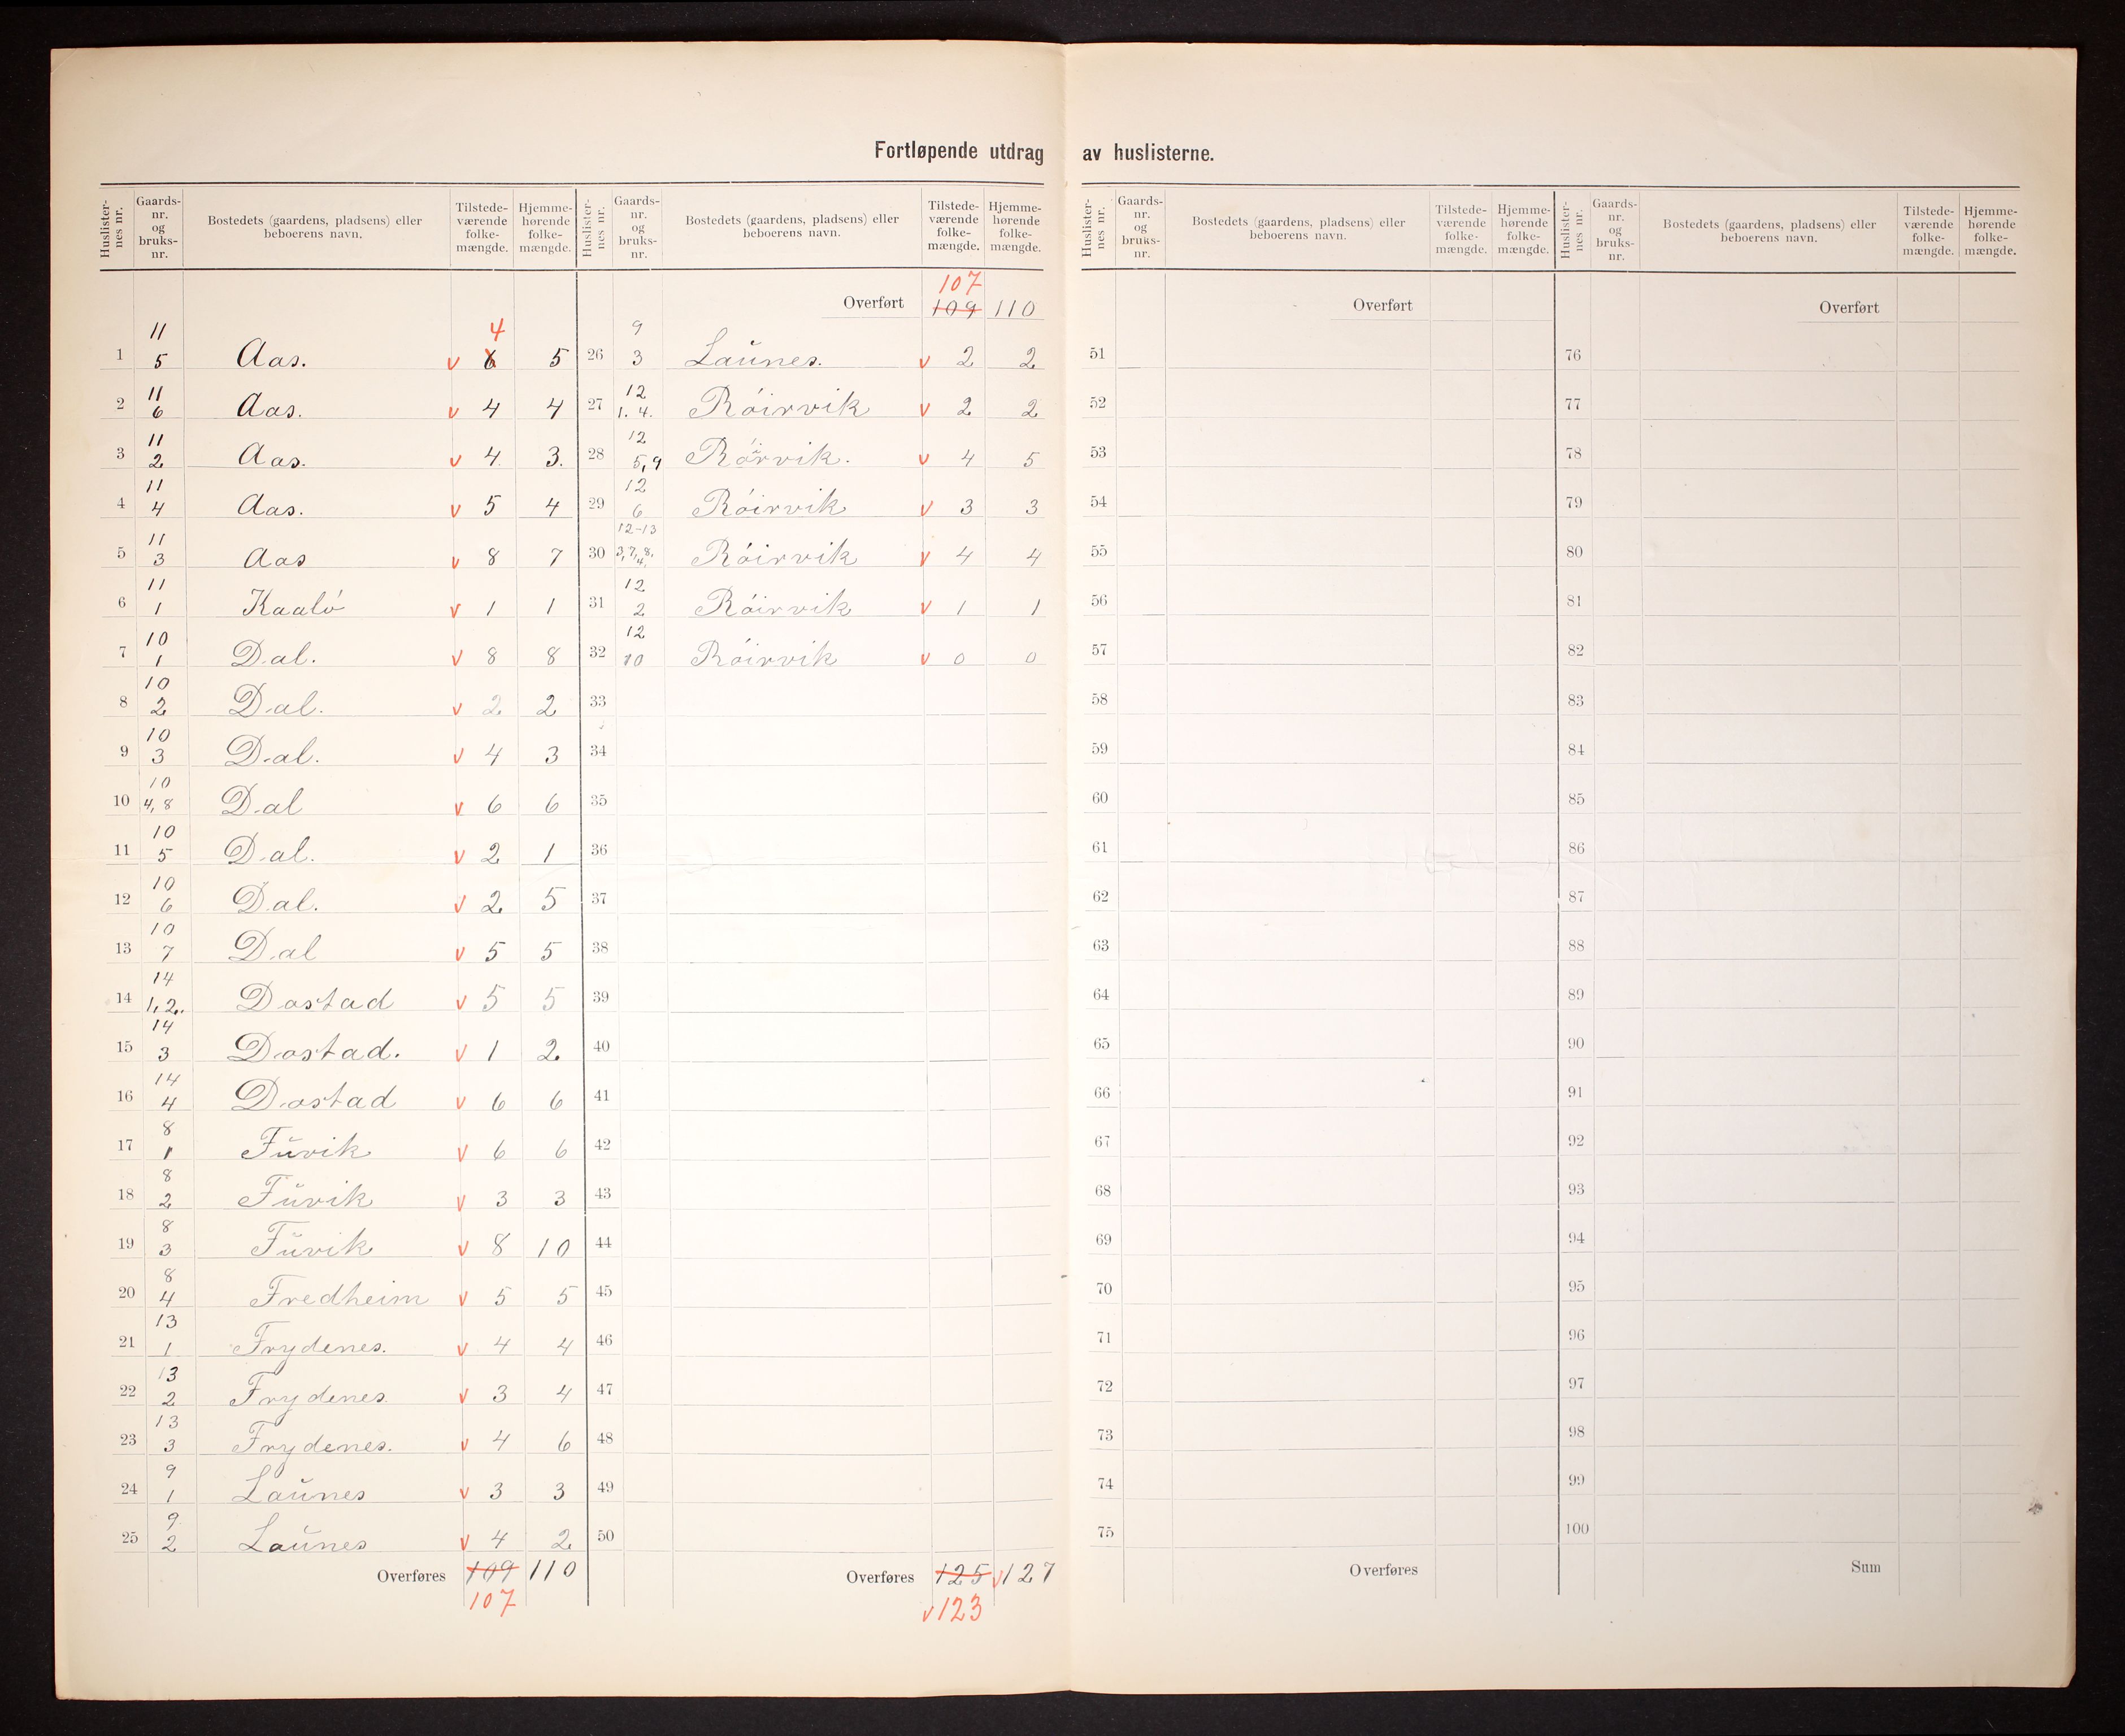 Fortløpende utdrag av huslisterne.
Huslister-nes nr. | Gaards-nr. og bruks-nr. | Bostedets (gaardens, pladsens) eller beboerens navn. | Tilstede-værende folke-mængde. | Hjemme-hørende folke-mængde.
1 | 11 5 | Aas. | v 6 4 | 5
2 | 11 6 | Aas. | v 4 | 4
3 | 11 2 | Aas. | v 4. | 3.
4 | 11 4 | Aas. | v 5 | 4
5 | 11 3 | Aas | v 8 | 7
6 | 11 1 | Kaalö | v 1 | 1
7 | 10 1 | Dal. | v 8 | 8
8 | 10 2 | Dal. | v 2 | 2
9 | 10 3 | Dal. | v 4 | 3
10 | 10 4, 8 | Dal | v 6 | 6
11 | 10 5 | Dal. | v 2 | 1
12 | 10 6 | Dal. | v 2 | 5
13 | 10 7 | Dal | v 5 | 5
14 | 14 1, 2. | Dostad | v 5 | 5
15 | 14 3 | Dostad. | v 1 | 2
16 | 14 4 | Dostad | v 6 | 6
17 | 8 1 | Fŭvik | v 6 | 6
18 | 8 2 | Fŭvik | v 3 | 3
19 | 8 3 | Fŭvik | v 8 | 10
20 | 8 4 | Fredheim | v 5 | 5
21 | 13 1 | Frydenes. | v 4 | 4
22 | 13 2 | Frydenes. | v 3 | 4
23 | 13 3 | Frydenes. | v 4 | 6
24 | 9 1 | Laŭnes | v 3 | 3
25 | 9 2 | Laŭnes | v 4 | 2
Overføres 109 110
107
Huslister-nes nr. | Gaards-nr. og bruks-nr. | Bostedets (gaardens, pladsens) eller beboerens navn. | Tilstede-værende folke-mængde. | Hjemme-hørende folke-mængde.
107
Overført 109 110
26 | 9 3 | Laŭnes. | v 2 | 2
27 | 12 1. 4. | Röirvik | v 2 | 2
28 | 12 5, 9 | Rörvik. | v 4 | 5
29 | 12 6 | Röirvik | v 3 | 3
30 | 12-13 3, 7, 8, 4, | Röirvik | v 4 | 4
31 | 12 2 | Röirvik | v 1 | 1
32 | 12 10 | Röirvik | v 0 | 0
33
34
35
36
37
38
39
40
41
42
43
44
45
46
47
48
49
50
Overføres 125 v 127
v 123
Huslister-nes nr. | Gaards-nr. og bruks-nr. | Bostedets (gaardens, pladsens) eller beboerens navn. | Tilstede-værende folke-mængde. | Hjemme-hørende folke-mængde.
Overført
51
52
53
54
55
56
57
58
59
60
61
62
63
64
65
66
67
68
69
70
71
72
73
74
75
Overføres
Huslister-nes nr. | Gaards-nr. og bruks-nr. | Bostedets (gaardens, pladsens) eller beboerens navn. | Tilstede-værende folke-mængde. | Hjemme-hørende folke-mængde.
Overført
76
77
78
79
80
81
82
83
84
85
86
87
88
89
90
91
92
93
94
95
96
97
98
99
100
Sum